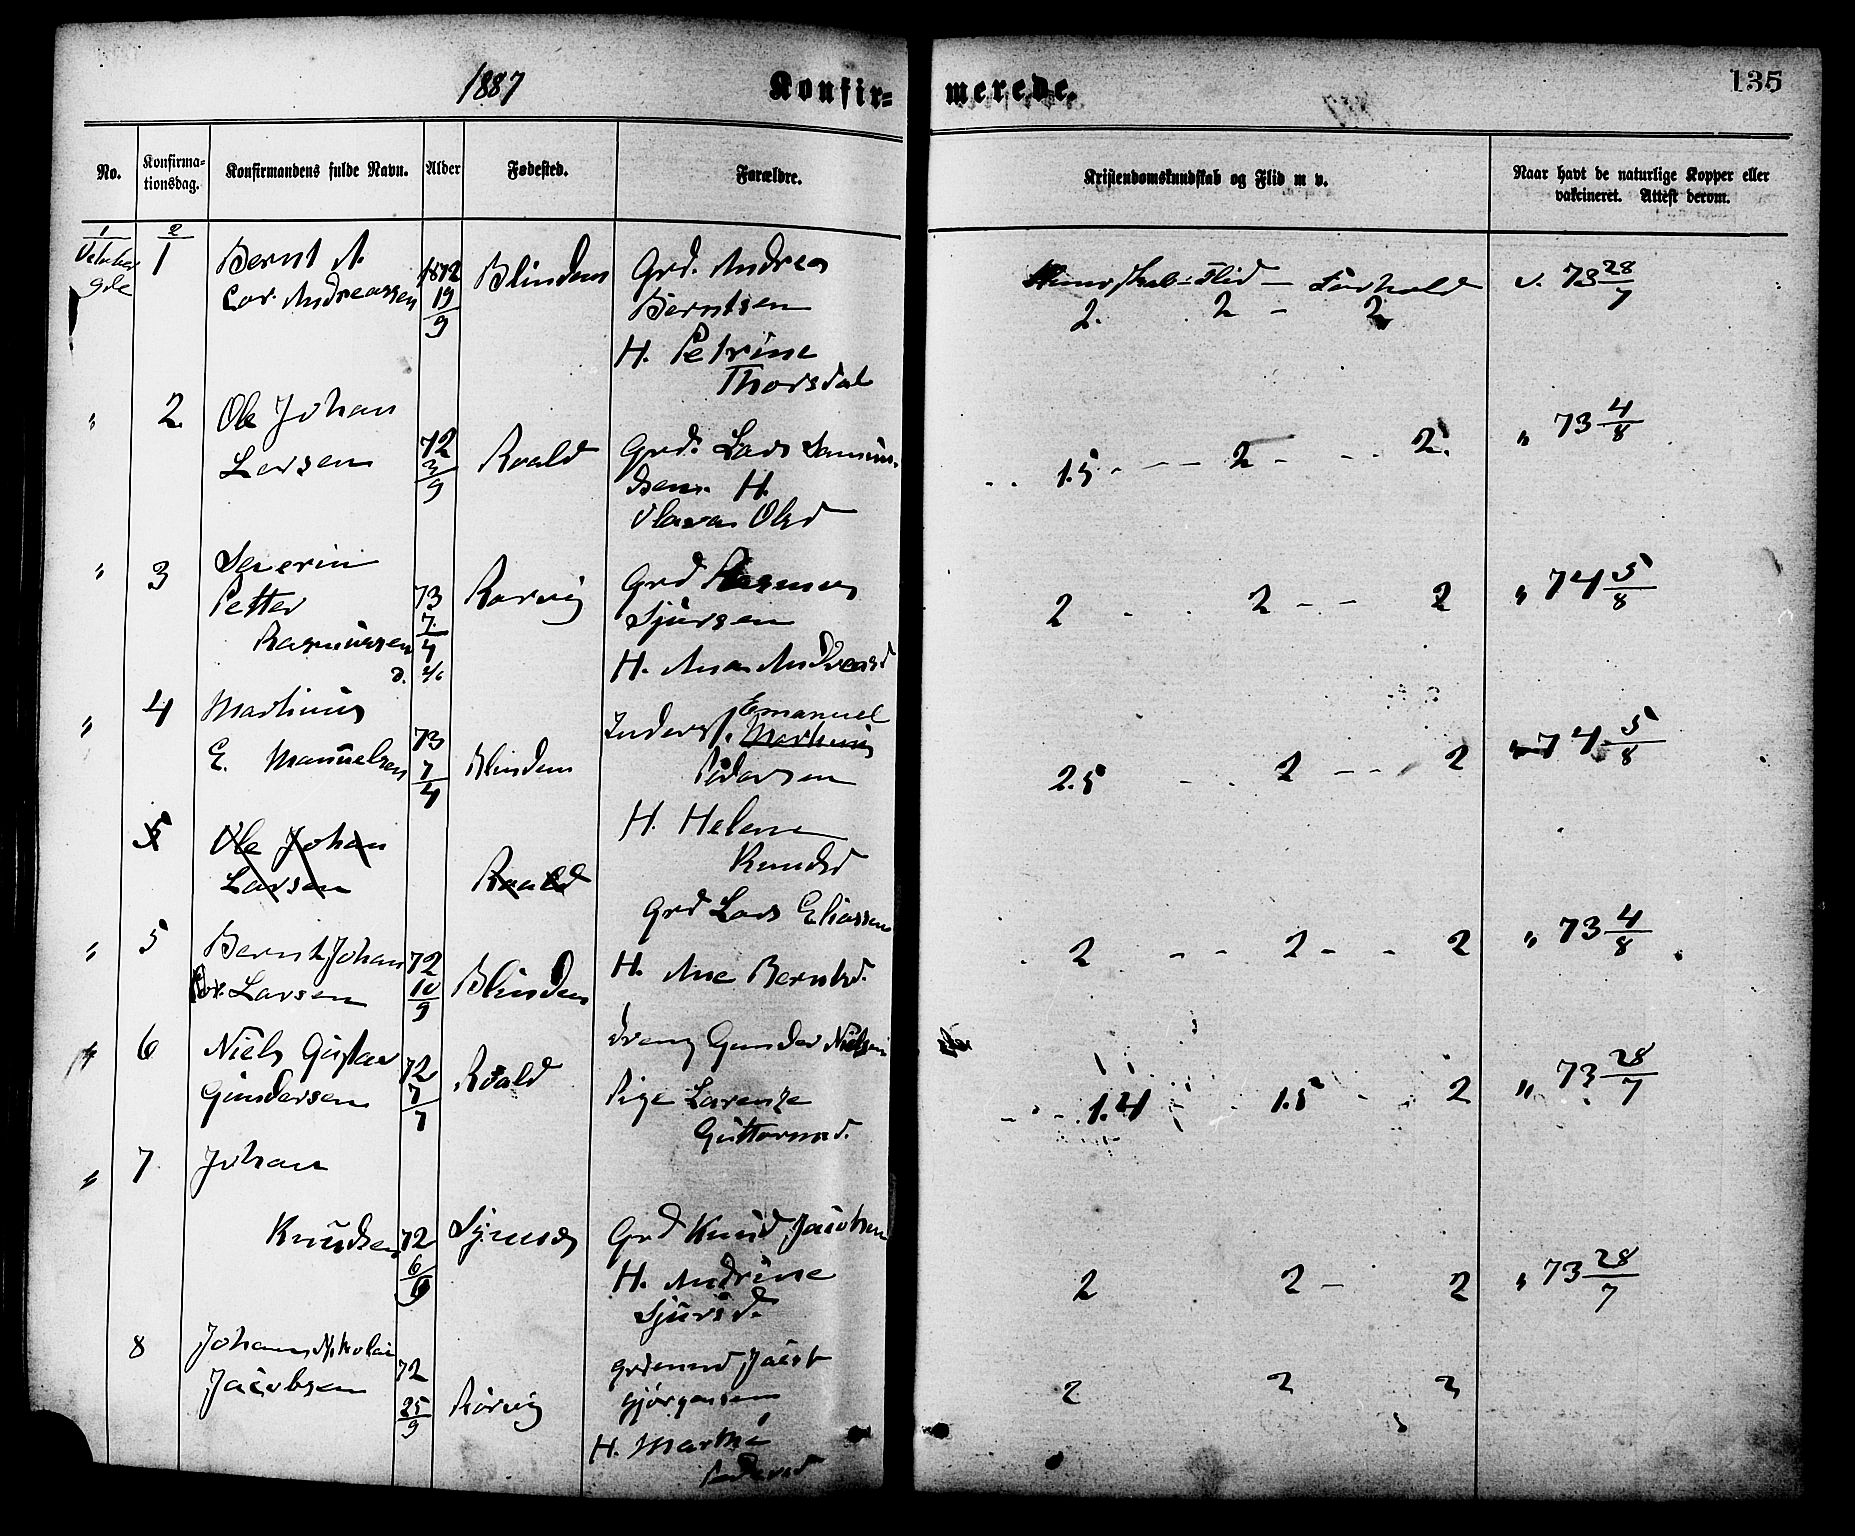 1887 Konfir= merede. 135
No. Konfirma-tionsdag. Konfirmandens fulde Navn. Alder Fødested. Forældre. Kristendomskundskab og Flid m v. Naar havt de naturlige Kopper eller vakcineret. Attest derom.
1 2
October 9de 1 Bernt A. 1872 Blindem Grd. Andreas Flid v. 73 28/7
Andreassen 19/9 Berntsen 2. 2 - 2
H. Petrine
Thorsdal
" 2. Ole Johan " 73 4/8
Larsen 72 3/9 Roald Grd. Lars 1.5 - - - 2 - - - 2.
H.
Olava Olsd
" 3 Severin
Petter 73 Rørvig Grd Rasmus 2 2 - - 2 " 74 5/8
Rasmussen 7/4 Sjursen
d. 4/6 H. Ana Andreasd
" 4 Martinius Inderst. Emanuel
E. Manuelsen 73 7/4 Blindem Martinius 2.5 2 - - 2 " 74 5/8
Pedersen
5 Ole Johan H. Helene
Larsen Roald Knudsd
Grd Lars Eliassen
" 5 Bernt Johan 72 Blindem H. Ane Berntsd. 2 - - 2 - - 2 " 73 4/8
Larsen 10/9
" 6 Niels Gustav 72 Roald Gunder Nielsen
Gundersen 7/7 Pige Larenze 1.4 1.5 - 2 " 73 28/7
Guttormsd.
" 7 Johan
Knudsen 72 Grd Knud Jacobsen
H. Andrine 2 2 - 2 " 73 28/7
Sjursd.
8 Johan Nikolai 72 Jacob
Jacobsen 25/9 Rørvig Gjørgensen 2 2 2
H. Marthe
Pedersd